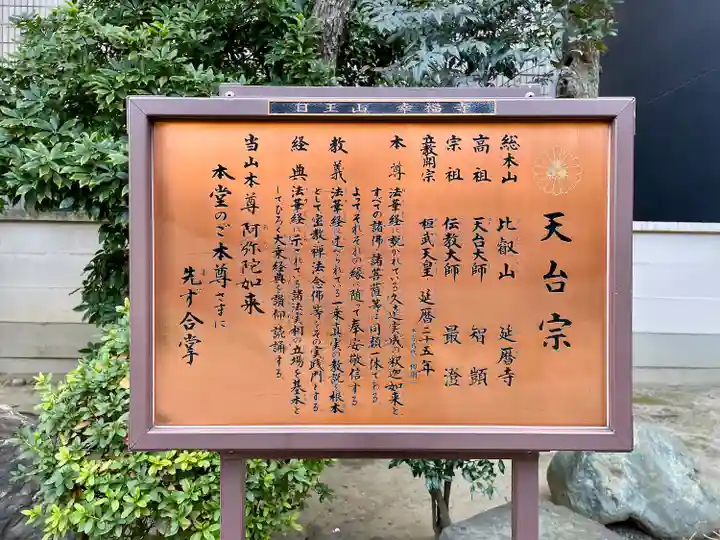 日王山 幸福寺
天台宗
総本山 比叡山 延暦寺
高祖 天台大師 智顗
宗祖 伝教大師 最澄
立教開宗 桓武天皇 延暦二十五年
本尊 法華経に説かれている久遠実成の釈迦如来と
すべての諸佛・諸菩薩等は同根一体である
よってそれぞれの縁に随って奉安敬信する
教義 法華経に述べられている一乗真実の教説を根本
として密教・禅法・念佛等をその実践門とする
経典 法華経に示されている諸法実相の立場を基本と
してひろく大乗経典を讃仰・読誦する
当山本尊 阿弥陀如来
本堂のご本尊さまに
先ず合掌